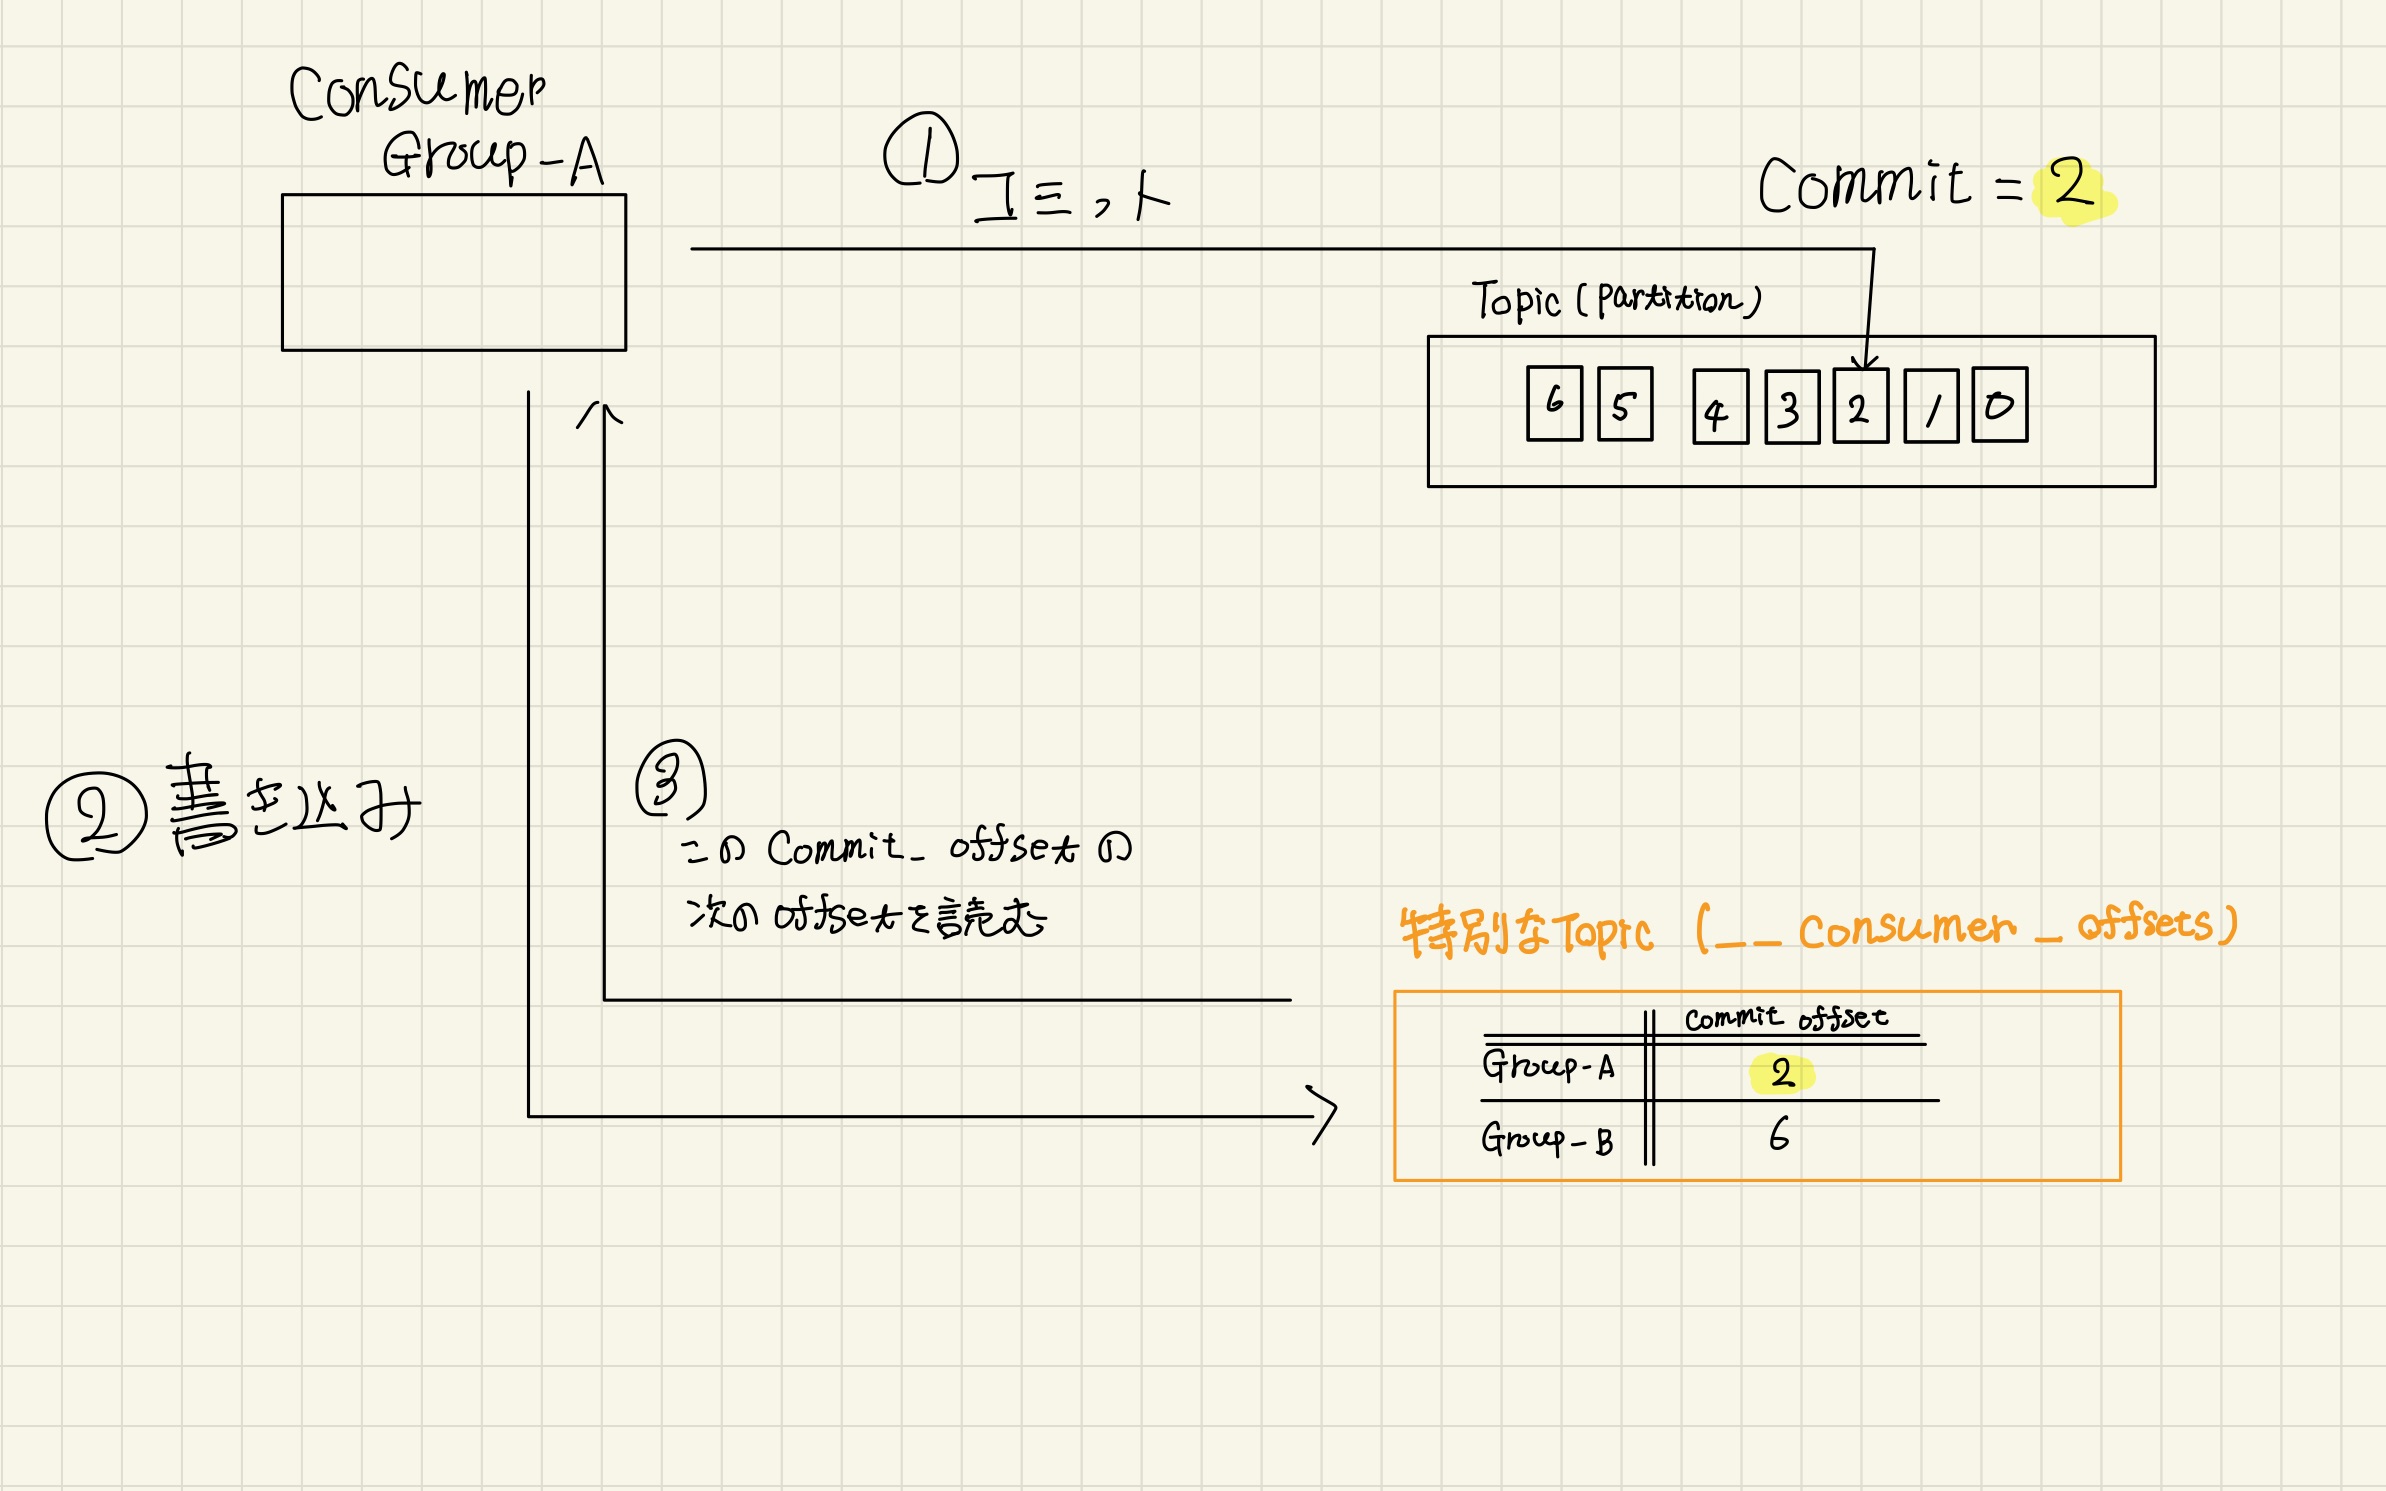 Consumer
Group-A
① コミット
Commit = 2
Topic (Partition)
6 5 4 3 2 1 0
② 書き込み
③
このCommit_offsetの
次のoffsetを読む
特別なTopic (__consumer_offsets)
Commit offset
Group-A 2
Group-B 6